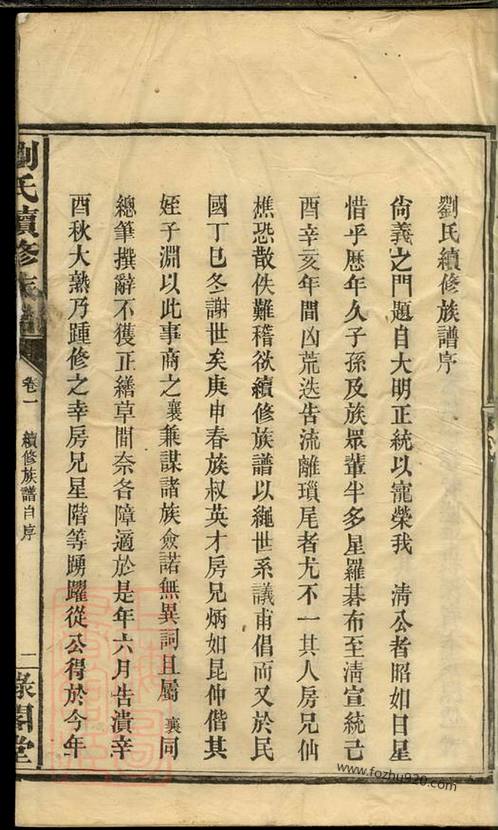 劉氏續修族譜序
尙義之門題自大明正統以寵榮我 淸公者昭如日星
惜乎歷年久子孫及族眾輩半多星羅碁布至淸宣統己
酉辛亥年間凶荒迭告流離瑣尾者尤不一其人房兄仙
樵恐散佚難稽欲續修族譜以繩世系議甫倡而又於民
國丁巳冬謝世矣庚申春族叔英才房兄炳如昆仲偕其
姪子淵以此事商之襄兼謀諸族僉諾無異詞且屬襄同
總筆撰辭不獲正繕草間奈各障適於是年六月告潰辛
酉秋大熟乃踵修之幸房兄星階等踴躍從公得於今年
劉氏續修族譜
卷一
續修族譜自序
一
祿閣堂
www.fozhu920.com